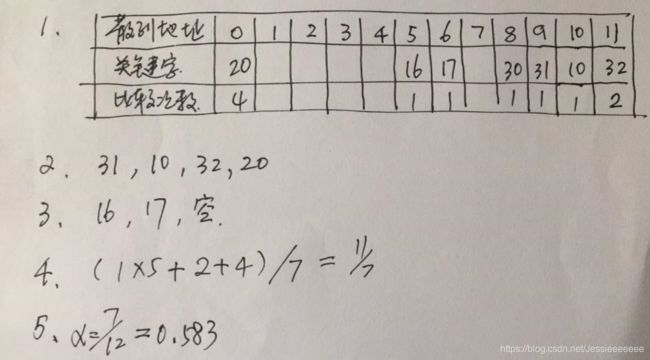 1.
散列地址 0 1 2 3 4 5 6 7 8 9 10 11
关键字 20 16 17 30 31 10 32
比较次数 4 1 1 1 1 1 2
2. 31, 10, 32, 20
3. 16, 17, 空.
4. (1×5+2+4)/7 = 11/7
5、α=7/12=0.583
https://blog.csdn.net/Jessieeeeeee